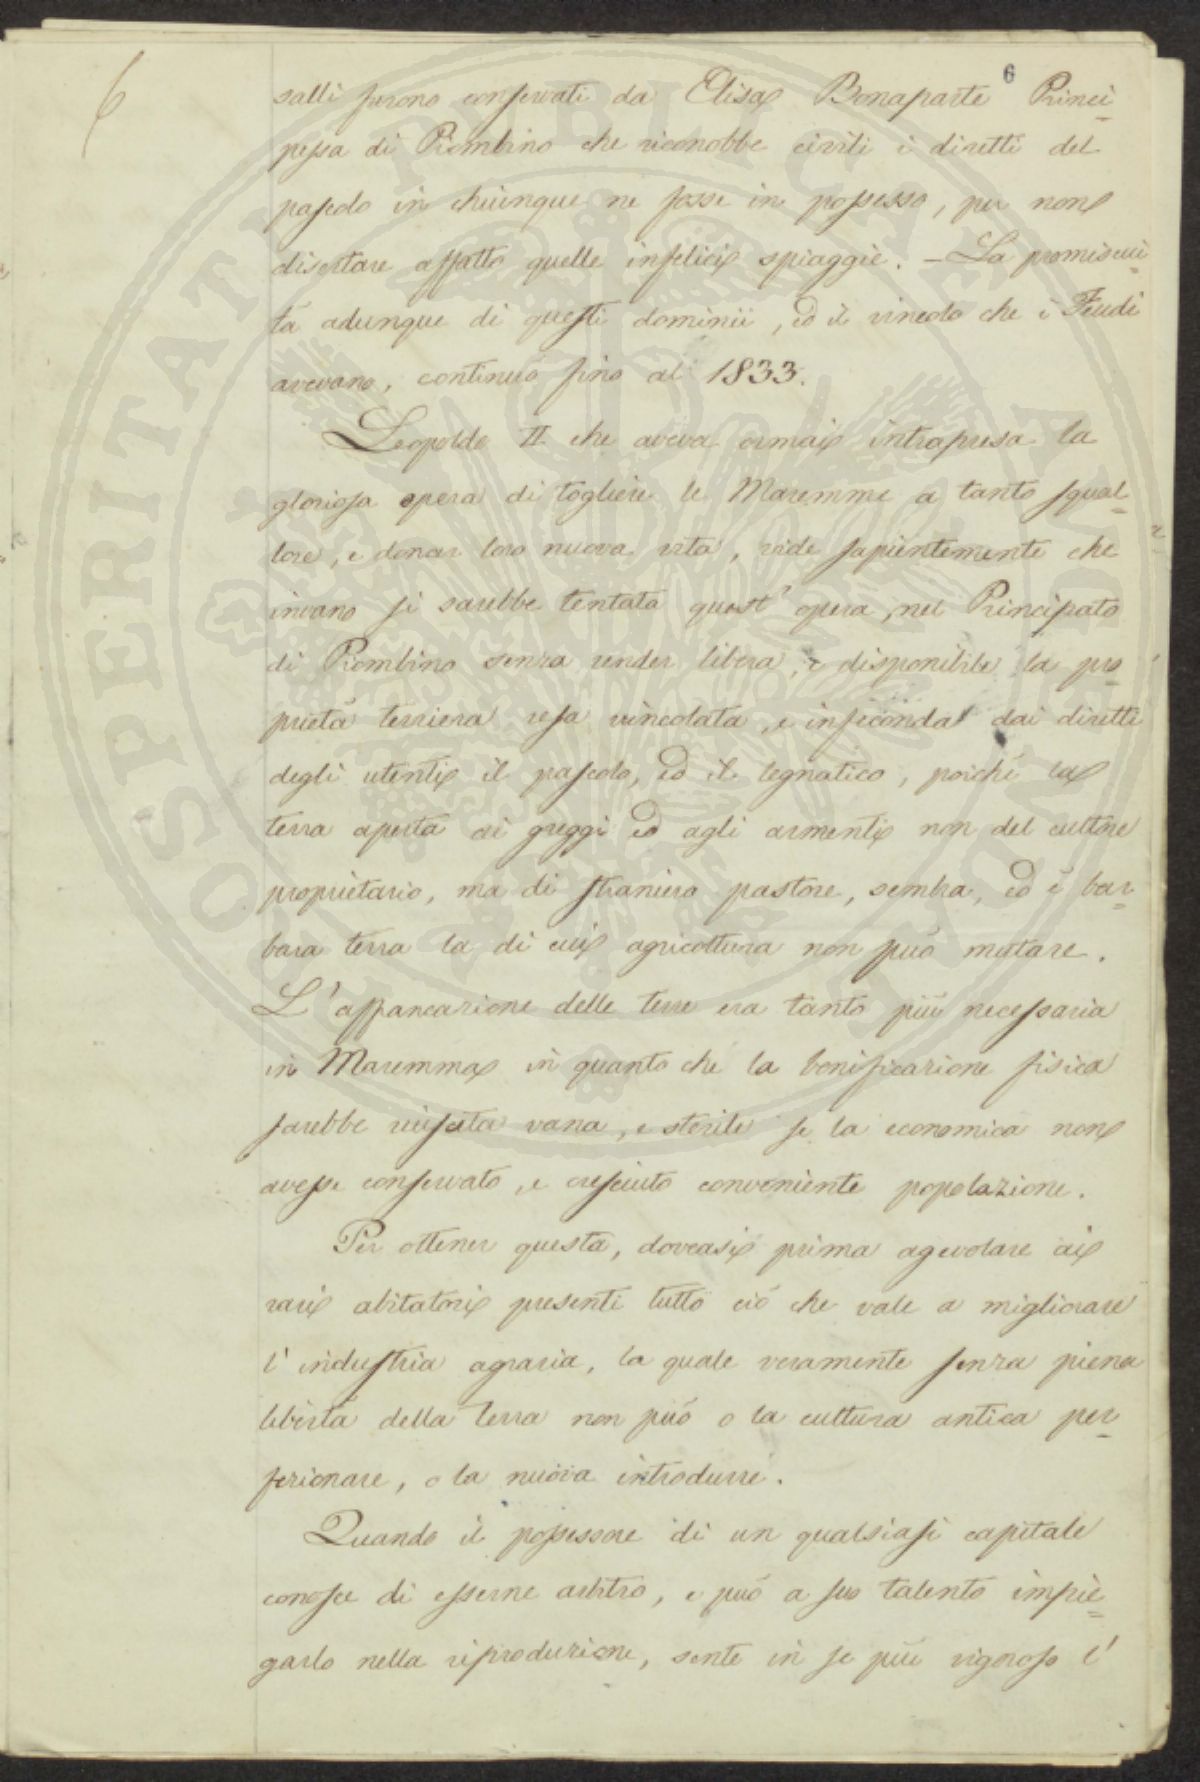 6
6
salli furono conservati da Elisa Bonaparte Princi-
pessa di Piombino che riconobbe civili i diretti del
pascolo in chiunque ne fosse in possesso, per non
disertare affatto quelle infelici spiaggie. – La promiscui-
tà adunque di questi dominii, ed il vincolo che i Feudi
avevano, continuò fino al 1833.
Leopoldo II che aveva ormai intrapresa la
gloriosa opera di togliere le Maremme a tanto squal-
lore, e donar loro nuova vita, vide sapientemente che
invano si sarebbe tentata quest' opera, nel Principato
di Piombino senza render libera, e disponibile la pro-
prietà terriera resa vincolata, e infeconda dai diretti
degli utenti il pascolo, ed il legnatico, poichè la
terra aperta ai greggi ed agli armenti non del cultore
proprietario, ma di straniero pastore, sembra, ed è bar-
bara terra la di cui agricoltura non può mutare.
L' affrancazione delle terre era tanto più necessaria
in Maremma in quanto che la bonificazione fisica
sarebbe riuscita vana, e sterile se la economica non
avesse conservato, e cresciuto conveniente popolazione.
Per ottener questa, doveasi prima agevolare ai
rari abitatori presenti tutto ciò che vale a migliorare
l' industria agraria, la quale veramente senza piena
libertà della terra non può o la cultura antica per-
fezionare, o la nuova introdurre.
Quando il possessore di un qualsiasi capitale
conosce di esserne arbitro, e può a suo talento impie-
garlo nella riproduzione, sente in se più vigoroso l'
PROSPERITATI PUBLICAE AUGENDAE